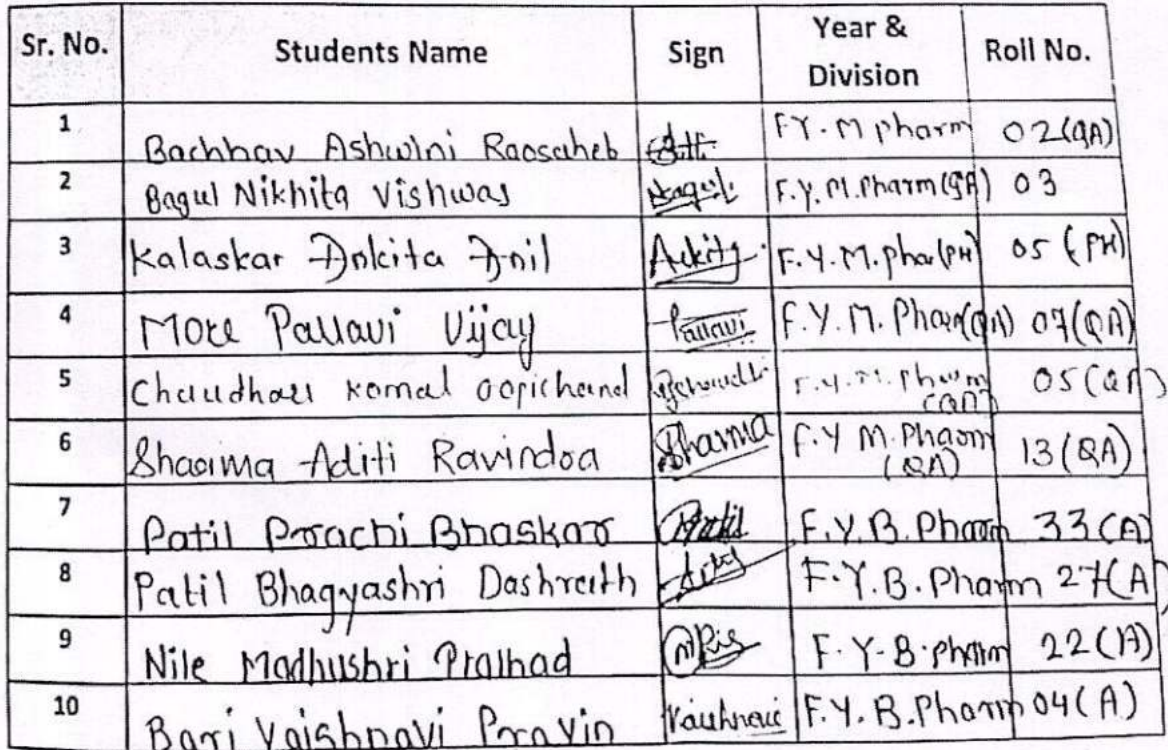 Sr. No. Students Name Sign Year & Division Roll No.
1 Bachhav Ashwini Raosaheb F.Y. M pharm 02(QA)
2 Bagul Nikhita Vishwas Bagul F.Y.M.Pharm(QA) 03
3 Kalaskar Ankita Anil Ankita F.Y.M.phar(PH) 05 (PH)
4 More Pallavi Vijay Pallavi F.Y.M. Pharm(QA) 07(QA)
5 Chaudhari Komal Gopichand F.Y.M. Pharm (QA) 05(QA)
6 Sharma Aditi Ravindra Sharma F.Y M.Pharm (QA) 13(QA)
7 Patil Prachi Bhaskar Patil F.Y.B.Pharm 33(A)
8 Patil Bhagyashri Dashrath F.Y.B.Pharm 27(A)
9 Nile Madhushri Pralhad F.Y-B.pharm 22(A)
10 Bari Vaishnavi Pravin Vaishnavi F.Y.B.Pharm 04(A)